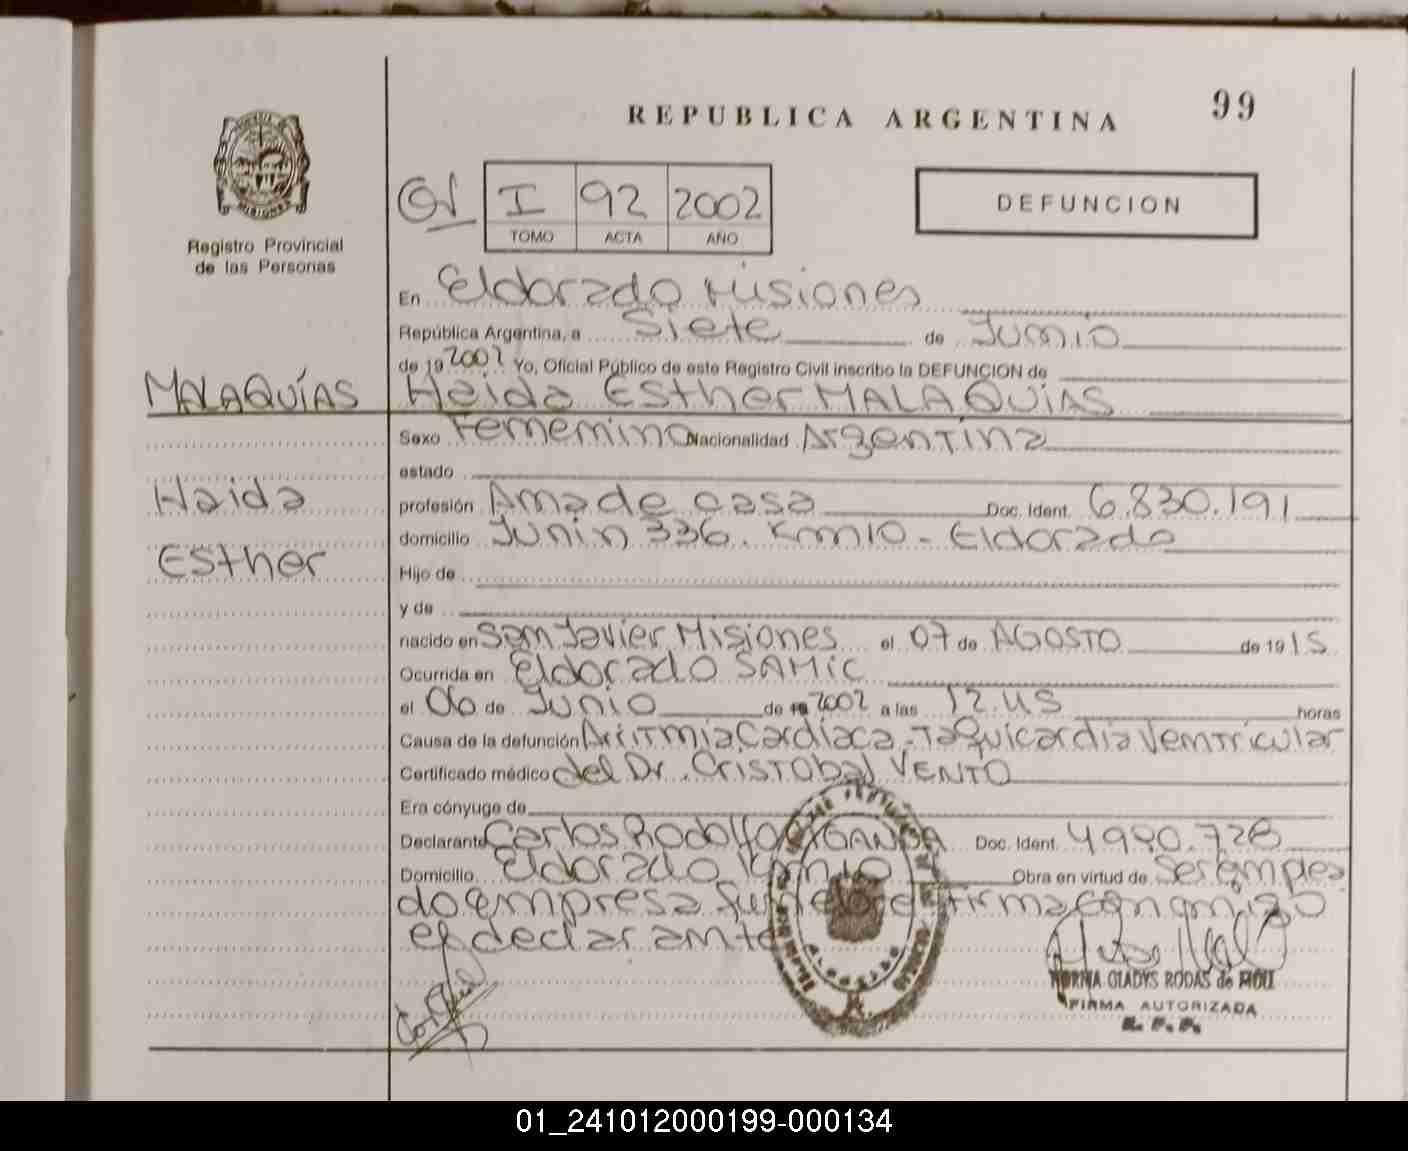 99
REPUBLICA ARGENTINA
MISIONES
Registro Provincial
de las Personas
I 92 2002
TOMO ACTA AÑO
DEFUNCION
En Eldorado Misiones
República Argentina, a Siete de Junio
de 19 2002 Yo, Oficial Público de este Registro Civil inscribo la DEFUNCION de
MALAQUÍAS Haida Esther MALAQUÍAS
Sexo Femenino Nacionalidad Argentina
estado
Haida
profesión Ama de casa Doc. Ident. 6.830.191
domicilio Junin 336. Km 10 - Eldorado
Esther
Hijo de
y de
nacido en San Javier Misiones el 07 de AGOSTO de 19 15
Ocurrida en Eldorado SAMIC
el 06 de Junio de 19 2002 a las 12.45 horas
Causa de la defunción Arritmia Cardiaca - Taquicardia Ventricular
Certificado médico del Dr. CRISTObal VENTO
Era cónyuge de
Declarante Carlos Rodolfo Doc. Ident. 4990.728
Domicilio Eldorado Km 10 Obra en virtud de Ser emplea
do empresa firma conmigo
el declarante
NORMA GLADYS RODAS de MOLL
FIRMA AUTORIZADA
01_241012000199-000134